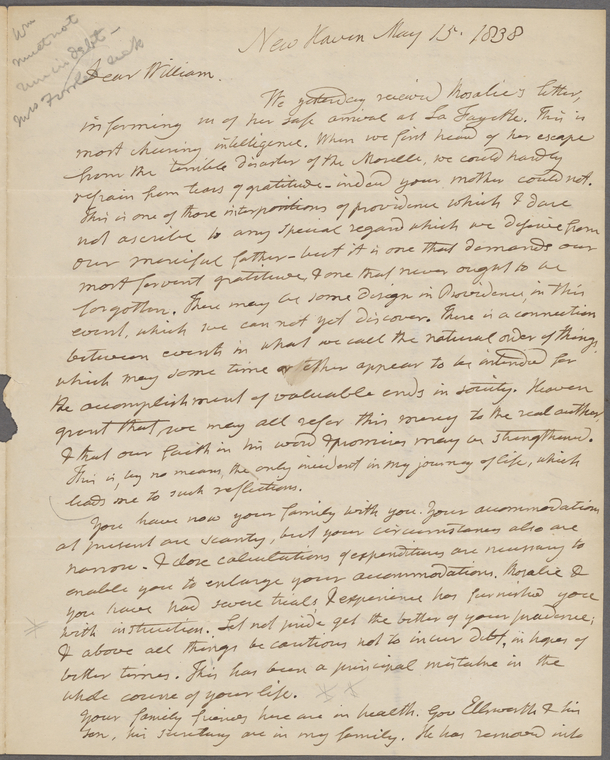 Wm
must not
run in debt -
Mrs Fowler sick
New Haven May 15. 1838
Dear William.
We yesterday received Rosalie's letter,
informing us of her safe arrival at La Fayette. This is
most cheering intelligence. When we first heard of her escape
from the terrible disaster of the Moselle, we could hardly
refrain from tears of gratitude - indeed your mother could not.
This is one of those interpositions of providence which I dare
not ascribe to any special regard which we deserve from
our merciful father - but it is one that demands our
most fervent gratitude, & one that never ought to be
forgotten. There may be some design in Providence, in this
event, which we can not yet discover. There is a connection
between events in what we call the natural order of things,
which may some time or other appear to be intended for
the accomplishment of valuable ends in society. Heaven
grant that we may all refer this mercy to the real author,
& that our faith in his word & promises may be strengthened.
This is, by no means, the only incident in my journey of life, which
leads me to such reflections.
You have now your family with you. Your accommodations
at present are scanty, but your circumstances also are
narrow. & close calculations of expenditures are necessary to
enable you to enlarge your accommodations. Rosalie &
you have had severe trials, & experience has furnished you
with instruction. Let not pride get the better of your prudence;
& above all things be cautious not to incur debt, in hopes of
better times. This has been a principal mistake in the
whole course of your life.
Your family friends here are in health. Gov Ellsworth & his
son, his secretary are in my family. He has removed into